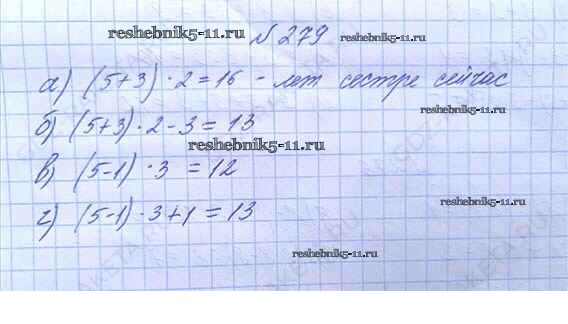 reshebnik5-11.ru № 279 reshebnik5-11.ru
а) (5+3)·2=16 - лет сестре сейчас
б) (5+3)·2-3=13
reshebnik5-11.ru
в) (5-1)·3=12
reshebnik5-11.ru
г) (5-1)·3+1=13
reshebnik5-11.ru